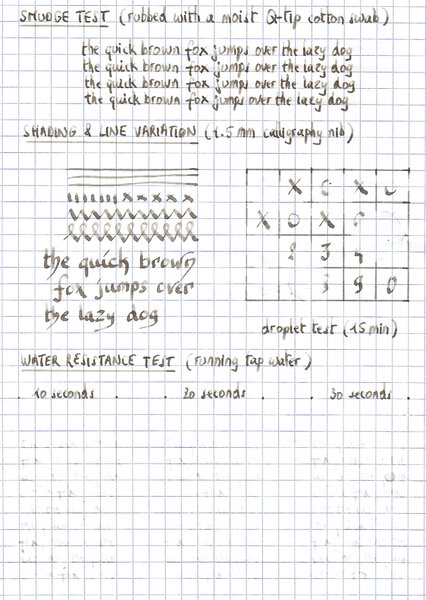 SMUDGE TEST (rubbed with a moist Q-tip cotton swab)
the quick brown fox jumps over the lazy dog
the quick brown fox jumps over the lazy dog
the quick brown fox jumps over the lazy dog
the quick brown fox jumps over the lazy dog
SHADING & LINE VARIATION (1.5 mm calligraphy nib)
X O X O
X O X
2 3 4
the quick brown
fox jumps over
the lazy dog
9 0
droplet test (15 min)
WATER RESISTANCE TEST (running tap water)
10 seconds . . 20 seconds . . 30 seconds .